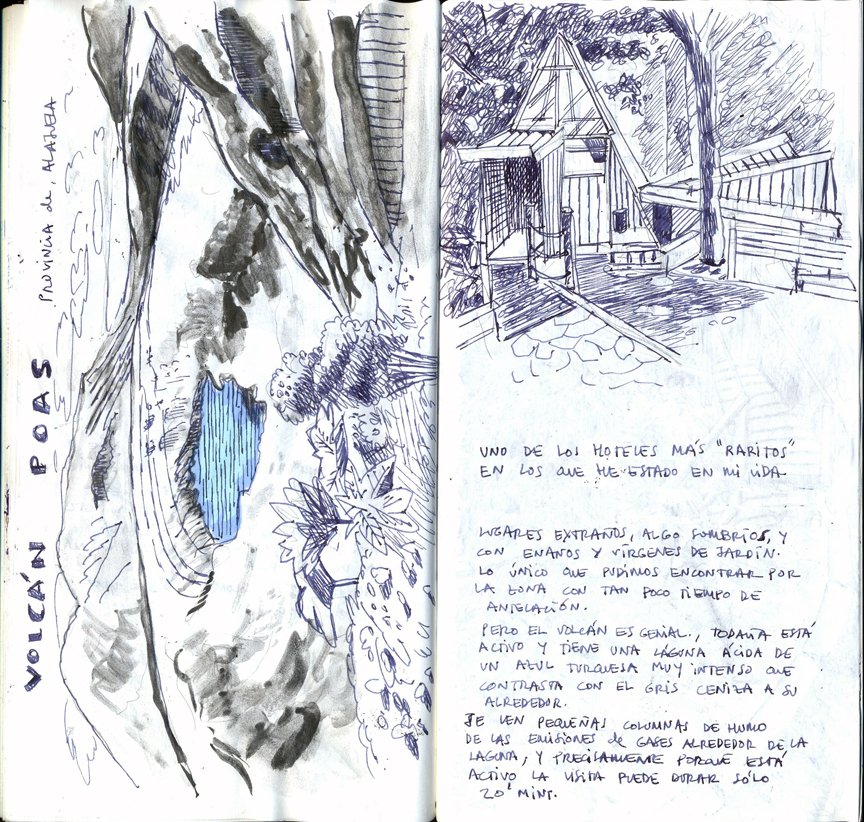 VOLCÁN POAS
PROVINCIA de, ALAJUELA
UNO DE LOS HOTELES MÁS "RARITOS"
EN LOS QUE HE ESTADO EN MI VIDA
LUGARES EXTRAÑOS, ALGO SOMBRÍOS, Y
CON ENANOS Y VÍRGENES DE JARDÍN.
LO ÚNICO QUE PUDIMOS ENCONTRAR POR
LA ZONA CON TAN POCO TIEMPO DE
ANTELACIÓN.
PERO EL VOLCÁN ES GENIAL, TODAVÍA ESTÁ
ACTIVO Y TIENE UNA LAGUNA ÁCIDA DE
UN AZUL TURQUESA MUY INTENSO QUE
CONTRASTA CON EL GRIS CENIZA A SU
ALREDEDOR.
SE VEN PEQUEÑAS COLUMNAS DE HUMO
DE LAS EMISIONES de GASES ALREDEDOR DE LA
LAGUNA, Y PRECISAMENTE PORQUE ESTÁ
ACTIVO LA VISITA PUEDE DURAR SÓLO
20' MINS.